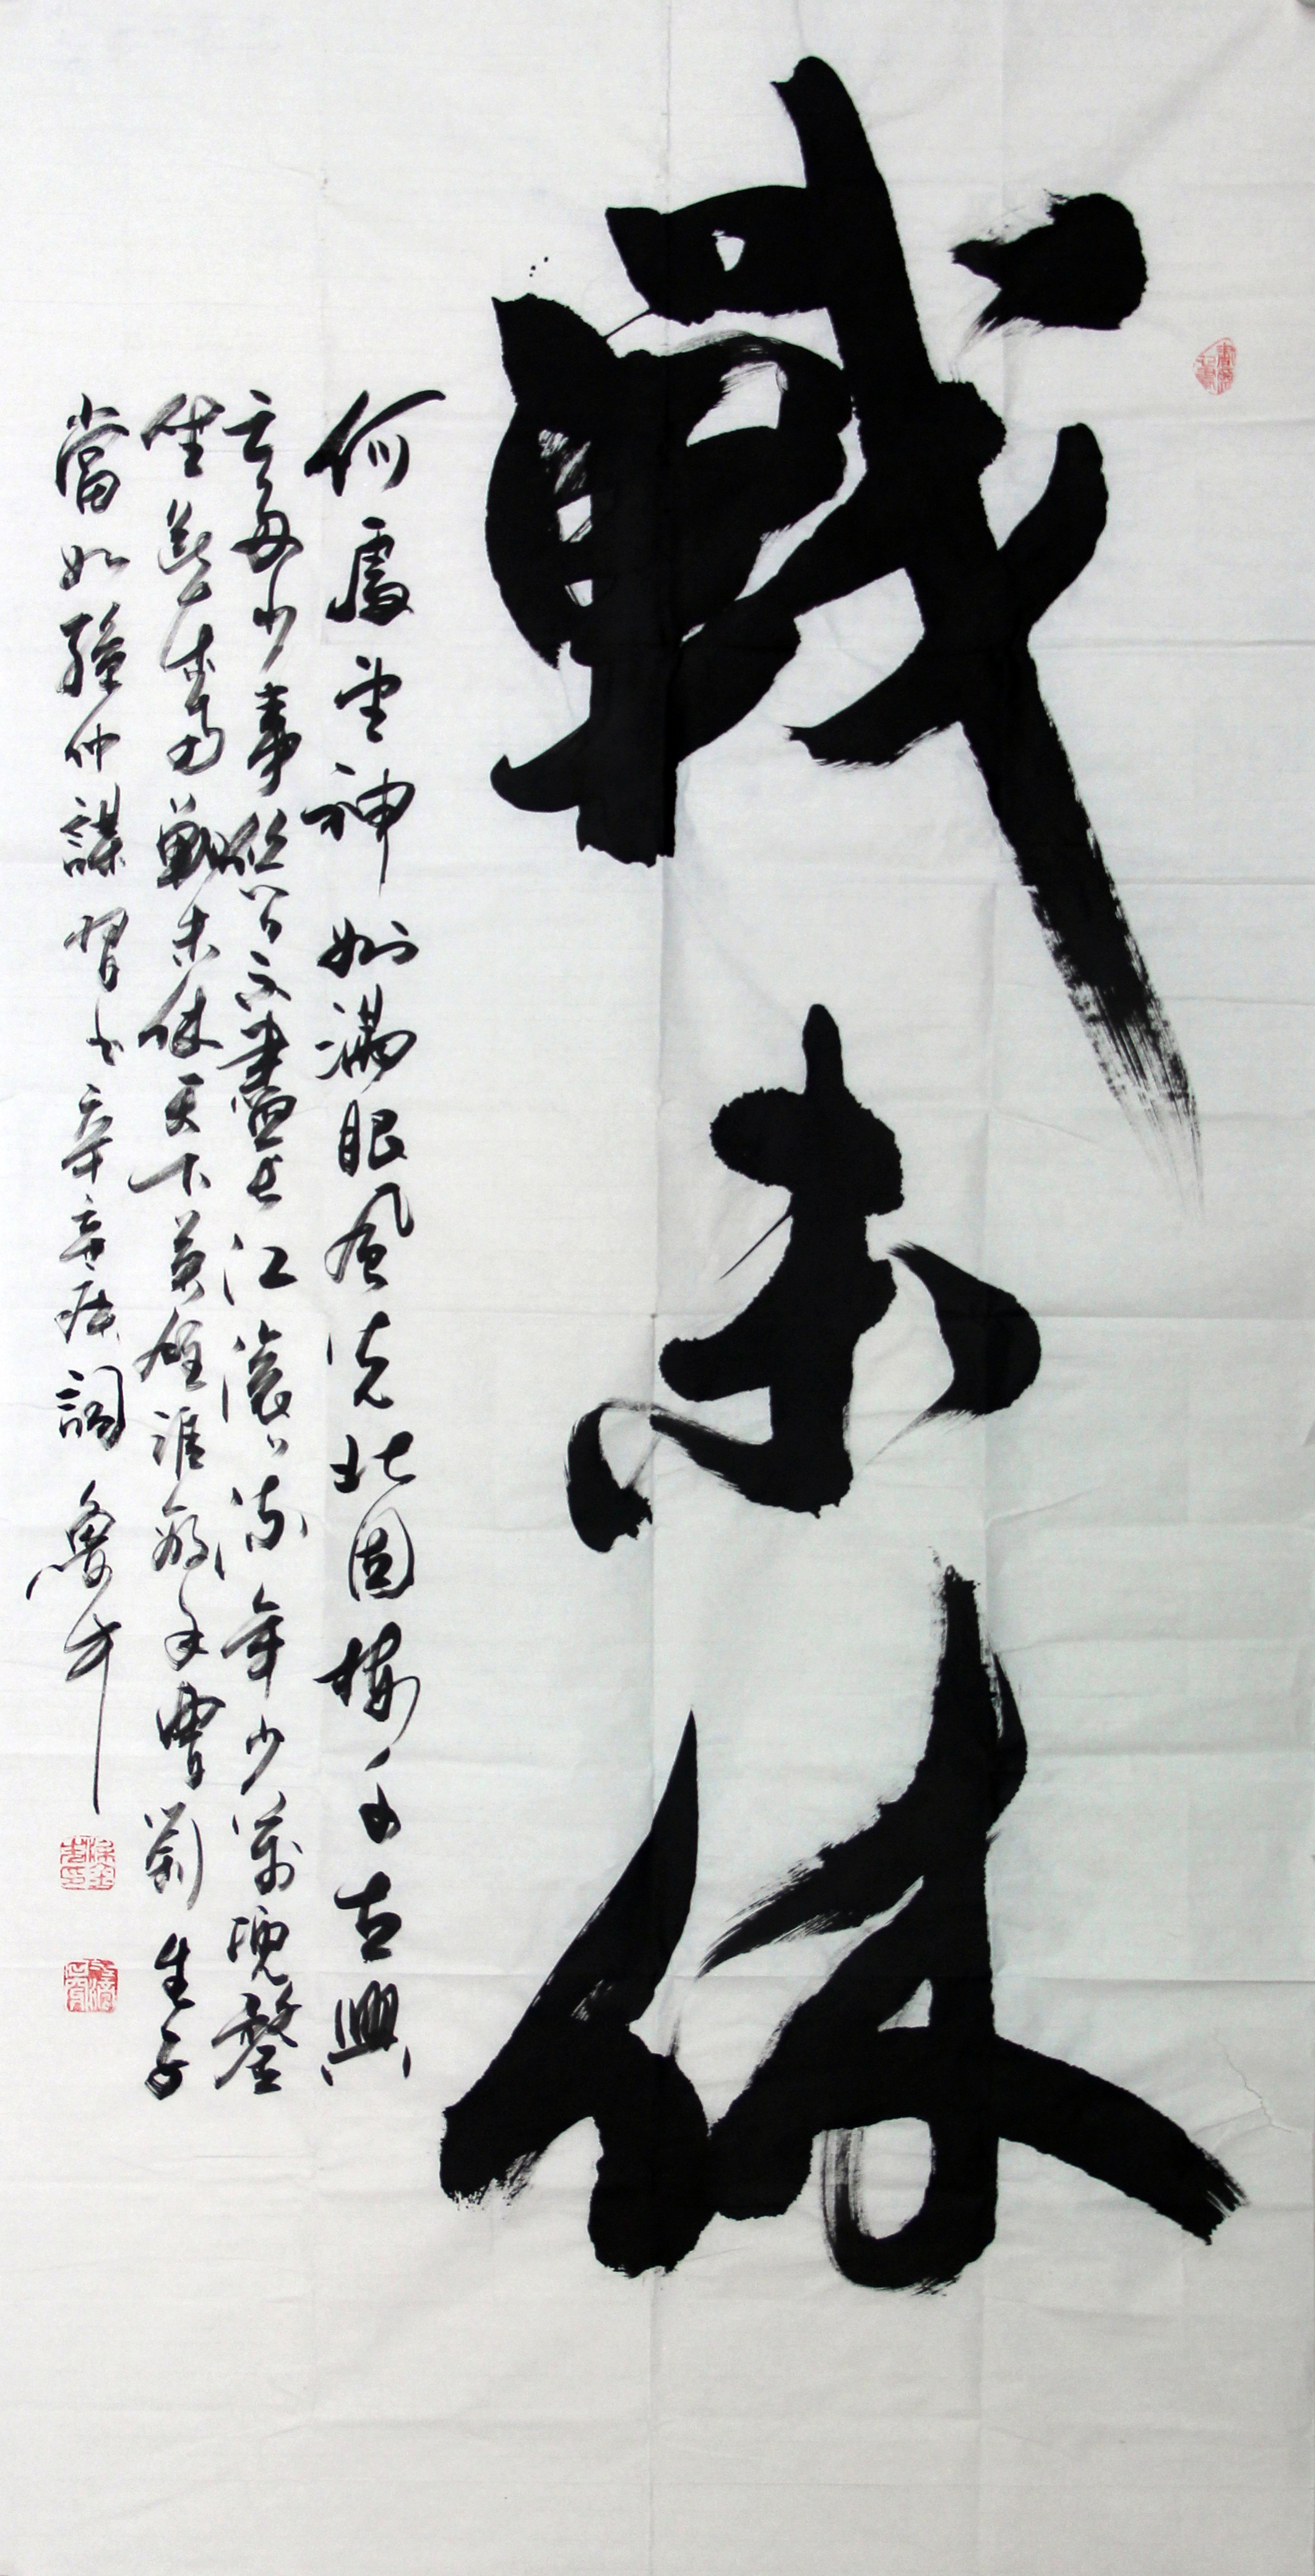 戰未休
何處望神州滿眼風光北固樓千古興
亡多少事悠〻不盡長江滾〻流年少萬兜鍪
坐斷東南戰未休天下英雄誰敵手曹劉生子
當如孫仲謀 習書辛棄疾詞